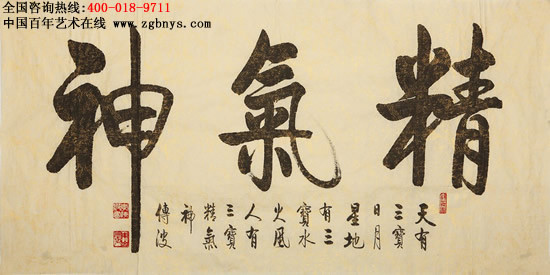 全国咨询热线:400-018-9711
中国百年艺术在线 www.zgbnys.com
精氣神
天有
三寶
日月
星地
有三
寶水
火風
人有
三寶
精氣
神